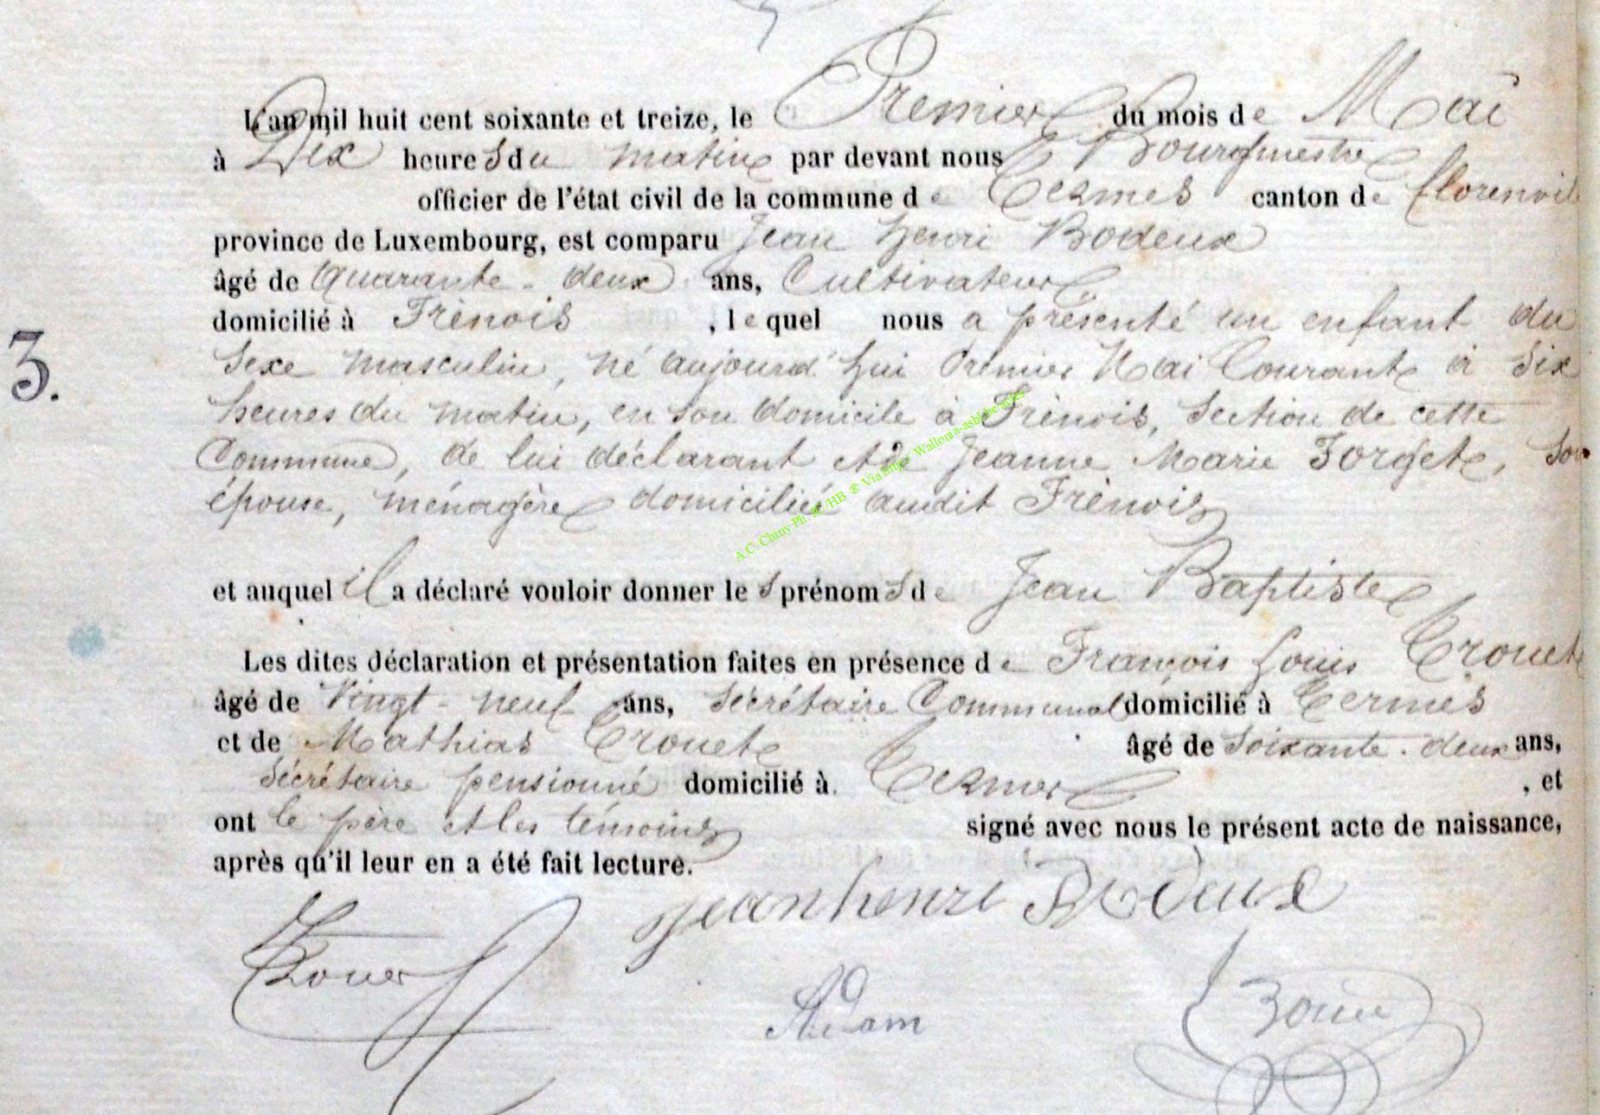 L'an mil huit cent soixante et treize, le Premier du mois de Mai
à Dix heures du matin par devant nous Bourgmestre
officier de l'état civil de la commune de Termes canton de florenvil
province de Luxembourg, est comparu Jean henri Bodeux
âgé de Quarante-deux ans, Cultivateur
domicilié à Frenois, lequel nous a présenté un enfant du
3.
Sexe masculin, né aujourd'hui Premier Mai Courant à Six
heures du matin, en son domicile à Frènois, Section de cette
Commune, de lui déclarant et de Jeanne Marie Forget, Son
épouse, ménagère domiciliée audit Frènois
A.C. Chiny Ph. HB ® Via Imago Wallonia-asbl
et auquel il a déclaré vouloir donner les prénoms de Jean Baptiste
Les dites déclaration et présentation faites en présence de François Louis
âgé de Vingt-neuf ans, Secrétaire Communal domicilié à Termes
et de Mathias âgé de Soixante-deux ans,
Sécrétaire pensionné domicilié à Termes, et
ont le père et les témoins signé avec nous le présent acte de naissance,
après qu'il leur en a été fait lecture.
jean henri Bodeux
Adam